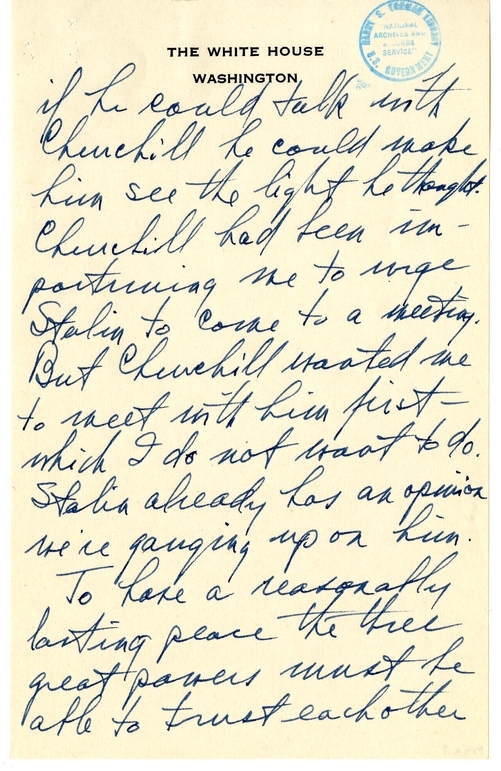 HARRY S. TRUMAN LIBRARY
"NATIONAL
ARCHIVES AND
RECORDS
SERVICE"
U.S. GOVERNMENT
THE WHITE HOUSE
WASHINGTON
if he could talk with
Churchill he could make
him see the light he thought.
Churchill had been im-
portuning me to urge
Stalin to come to a meeting.
But Churchill wanted me
to meet with him first –
which I do not want to do.
Stalin already has an opinion
we're ganging up on him.
To have a reasonably
lasting peace the three
great powers must be
able to trust eachother